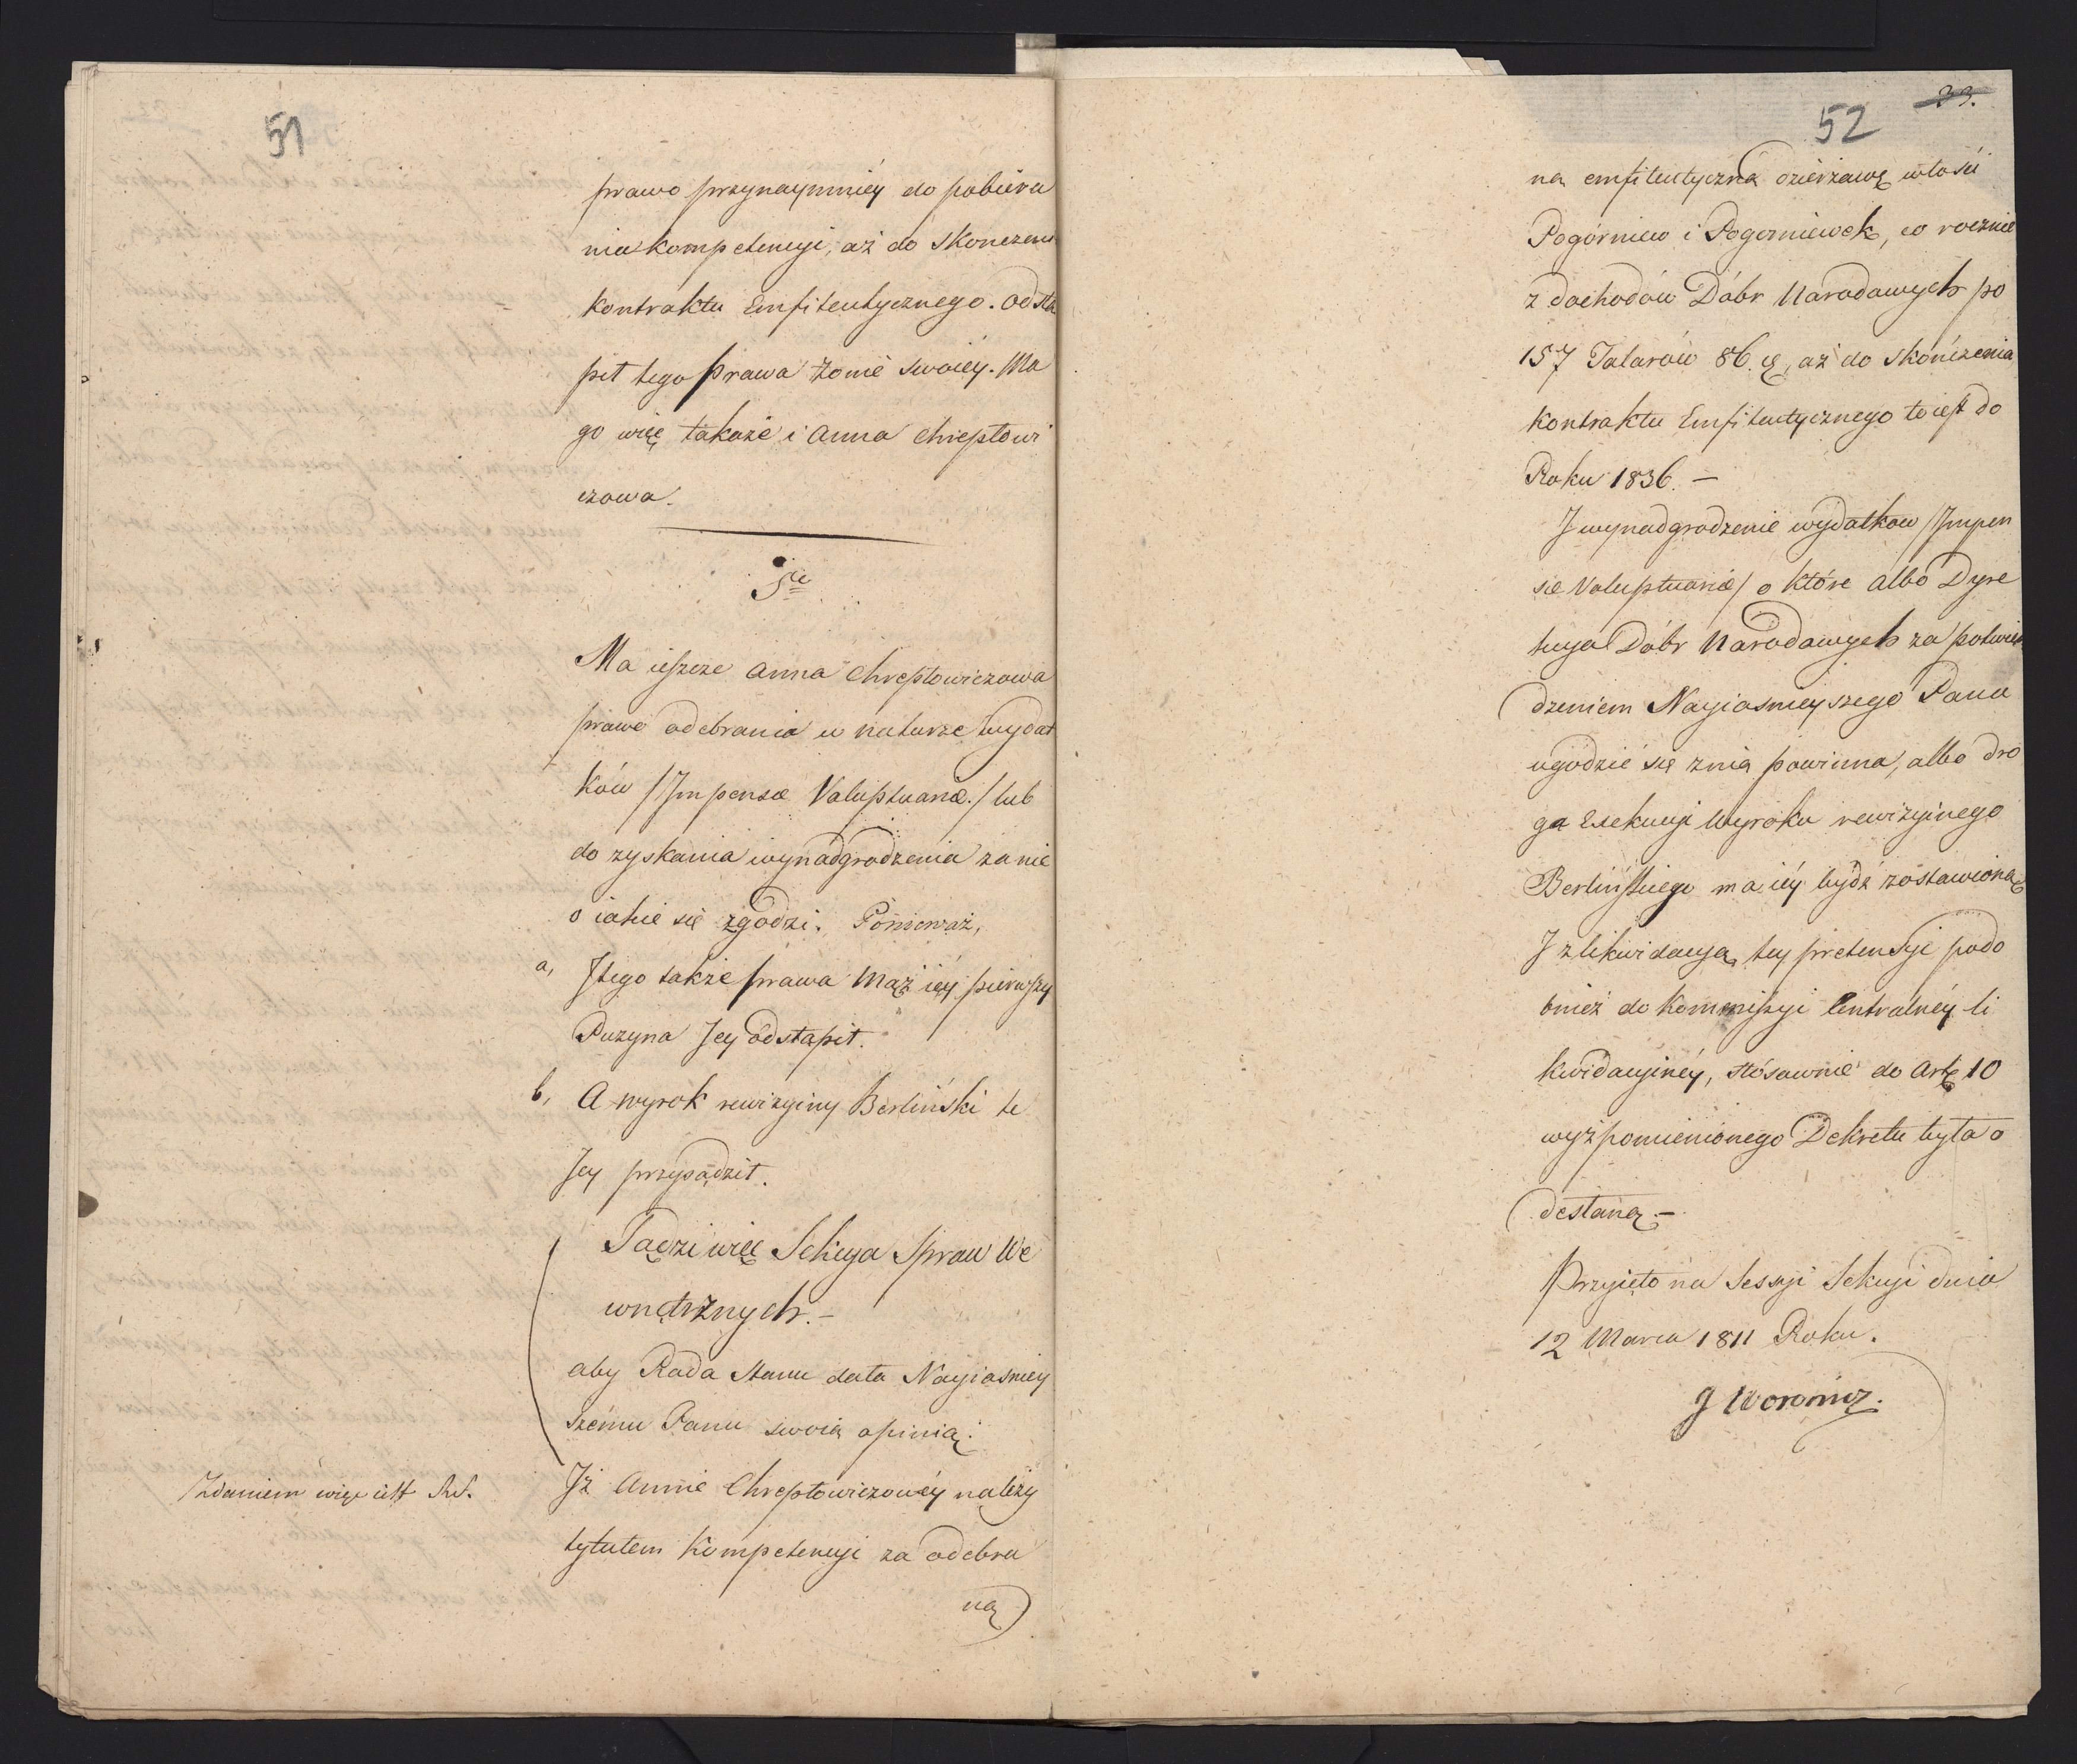 51
prawo przynaymniéy do pobiera
nia kompetencyi, aż do skończenia
kontraktu Emfiteutycznego. Odstą
pił tego prawa żonie swoiéy. Ma
go więc takoże i Anna Chreptowi
czowa.
5te
Ma ieszcze Anna Chreptowiczowa
prawo odebrania w naturze wydat
ków /Impensae Voluptuariae./ lub
do zyskania wynadgrodzenia za nie
o iakie się zgodzi. Ponieważ,
a, I tego także prawa Mąż iéy pierwszy
Puzyna Jey odstąpił.
b, A wyrok rewizyiny Berliński te
Jey przysądził.
Sądzi więc Sekcya Spraw We
wnętrznych. –
aby Rada Stanu dała Nayiaśniey
szému Panu swoią opinią:
Zdaniem więc iest R. S.
Iż Annie Chreptowiczowéy należy
tytułem Kompetencyi za odebra
ną
33.
52
ną emfiteutyczną dzierżawę włości
Pogórniew i Pogorniewek, co rocznie
z dochodów Dóbr Narodowych po
157 Talarów 86. , aż do skończenia
kontraktu Emfiteutycznego to iest do
Roku 1836. –
I wynadgrodzenie wydatkow /Impen
sae Voluptuariae/ o które albo Dyre
kcya Dóbr Narodowych za potwier
dzeniem Nayiaśnieyszego Pana
ugodzić się z nią powinna, albo dro
ga Exekucyi Wyroku rewizyinego
Berlińskiego ma iéy bydź zostawioną
I z likwidacyą tey pretensyi podo
bnież do Kommissyi Centralnéy li
kwidacyinéy, stósownie do Art. 10
wyżpomienionego Dekretu była o
desłaną. –
Przyięto na Sessyi Sekcyi dnia
12 Marca 1811 Roku.
J Woronicz.